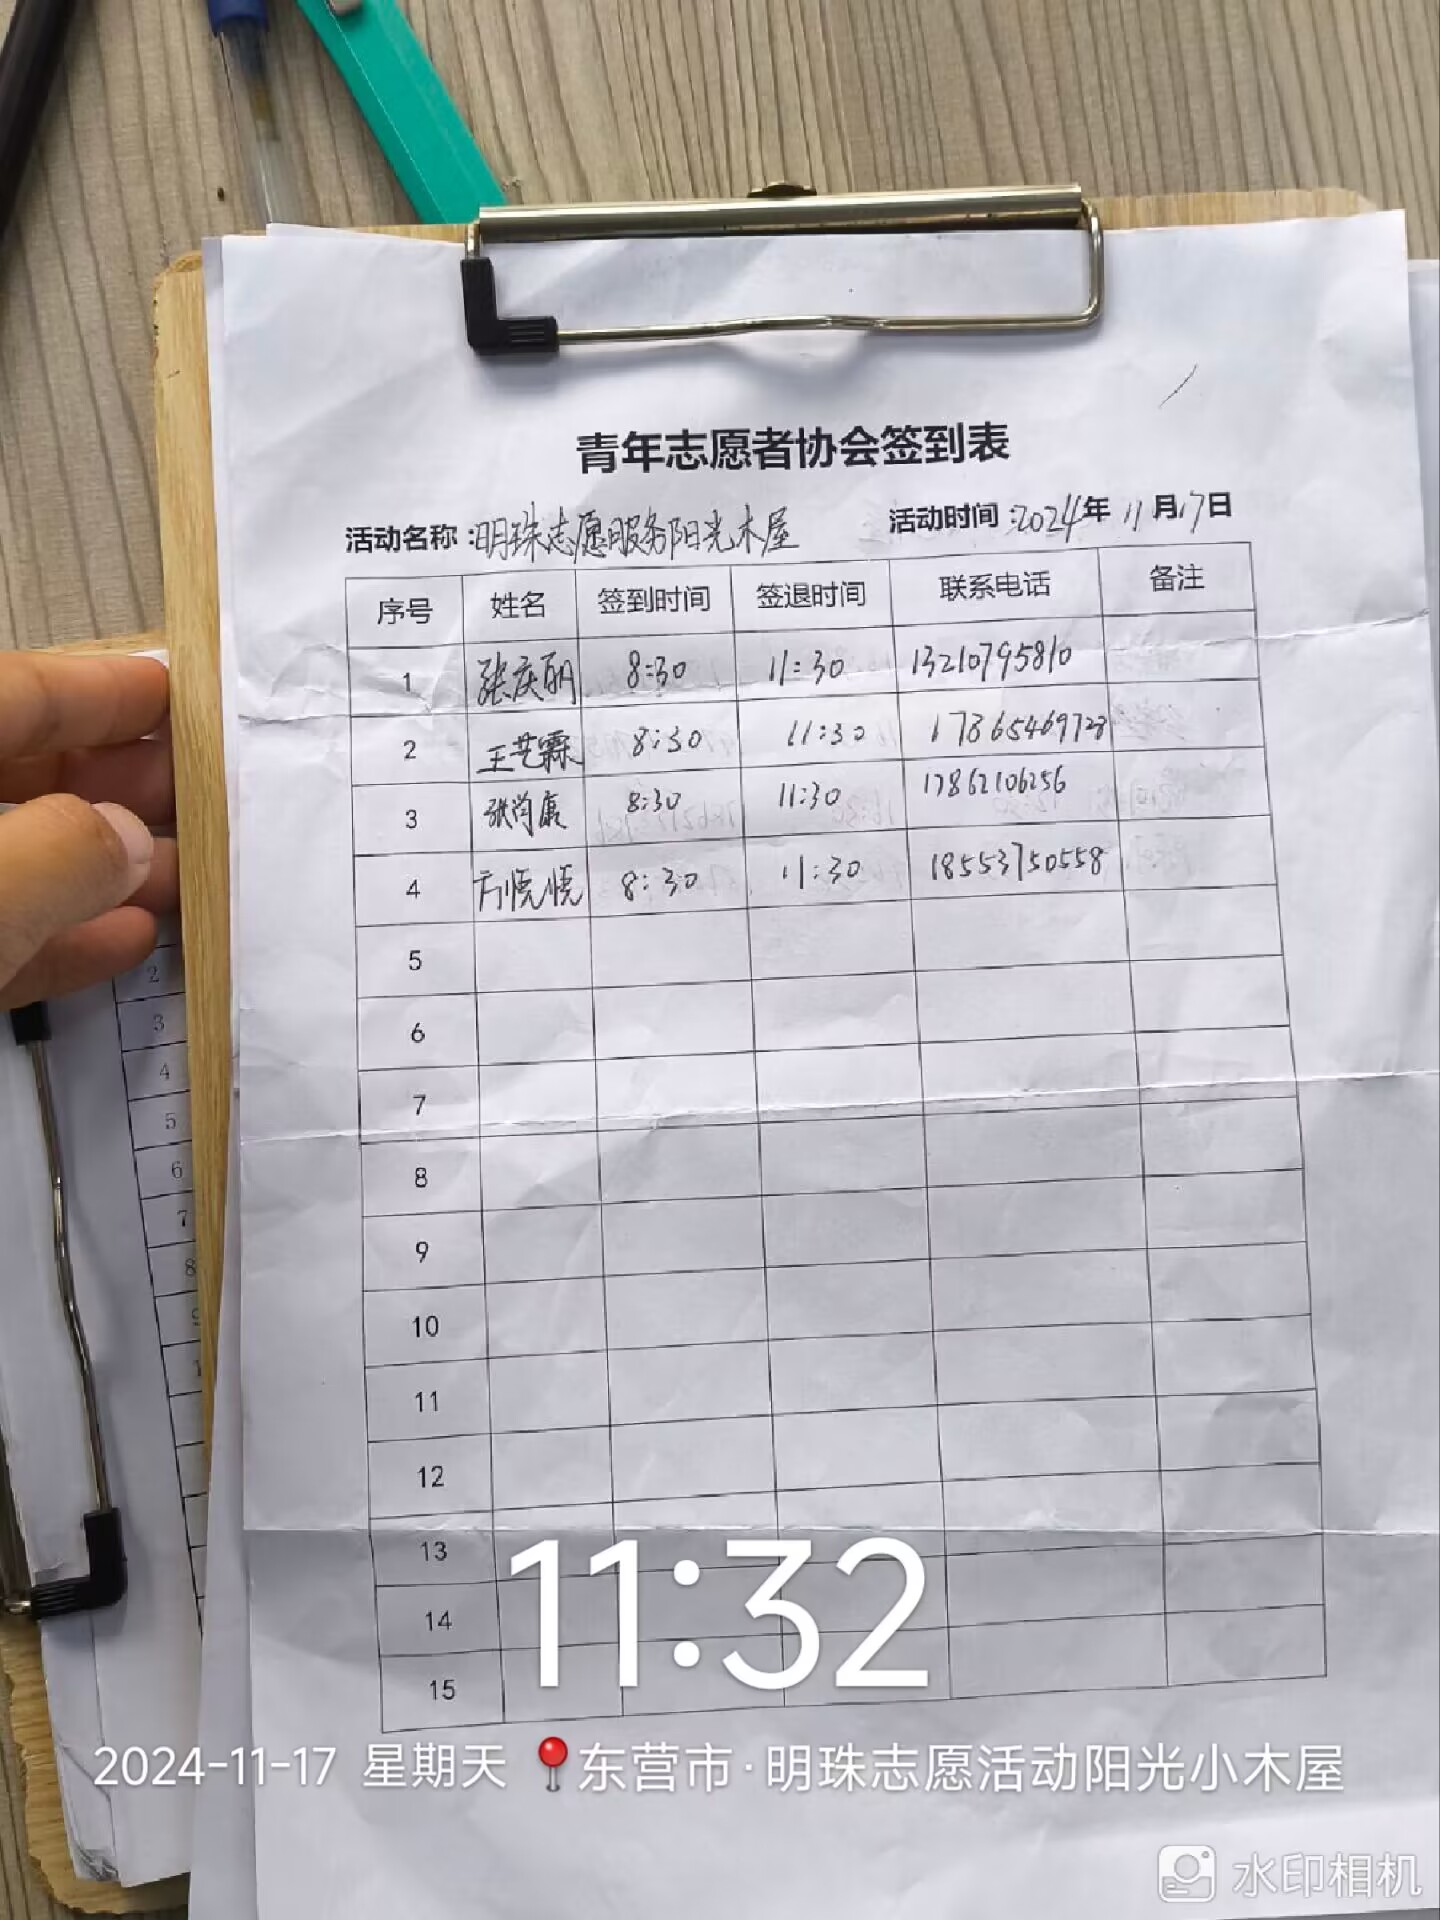 青年志愿者协会签到表
活动名称:明珠志愿服务阳光木屋 活动时间:2024年11月17日
序号 姓名 签到时间 签退时间 联系电话 备注
1 张庆丽 8:30 11:30 13210795810
2 王艺霖 8:30 11:30 17865469728
3 张尚康 8:30 11:30 17862106256
4 方悦悦 8:30 11:30 18553750558
5
6
7
8
9
10
11
12
13
14
15
2
3
4
5
6
7
8
9
11:32
2024-11-17 星期天 东营市·明珠志愿活动阳光小木屋
水印相机